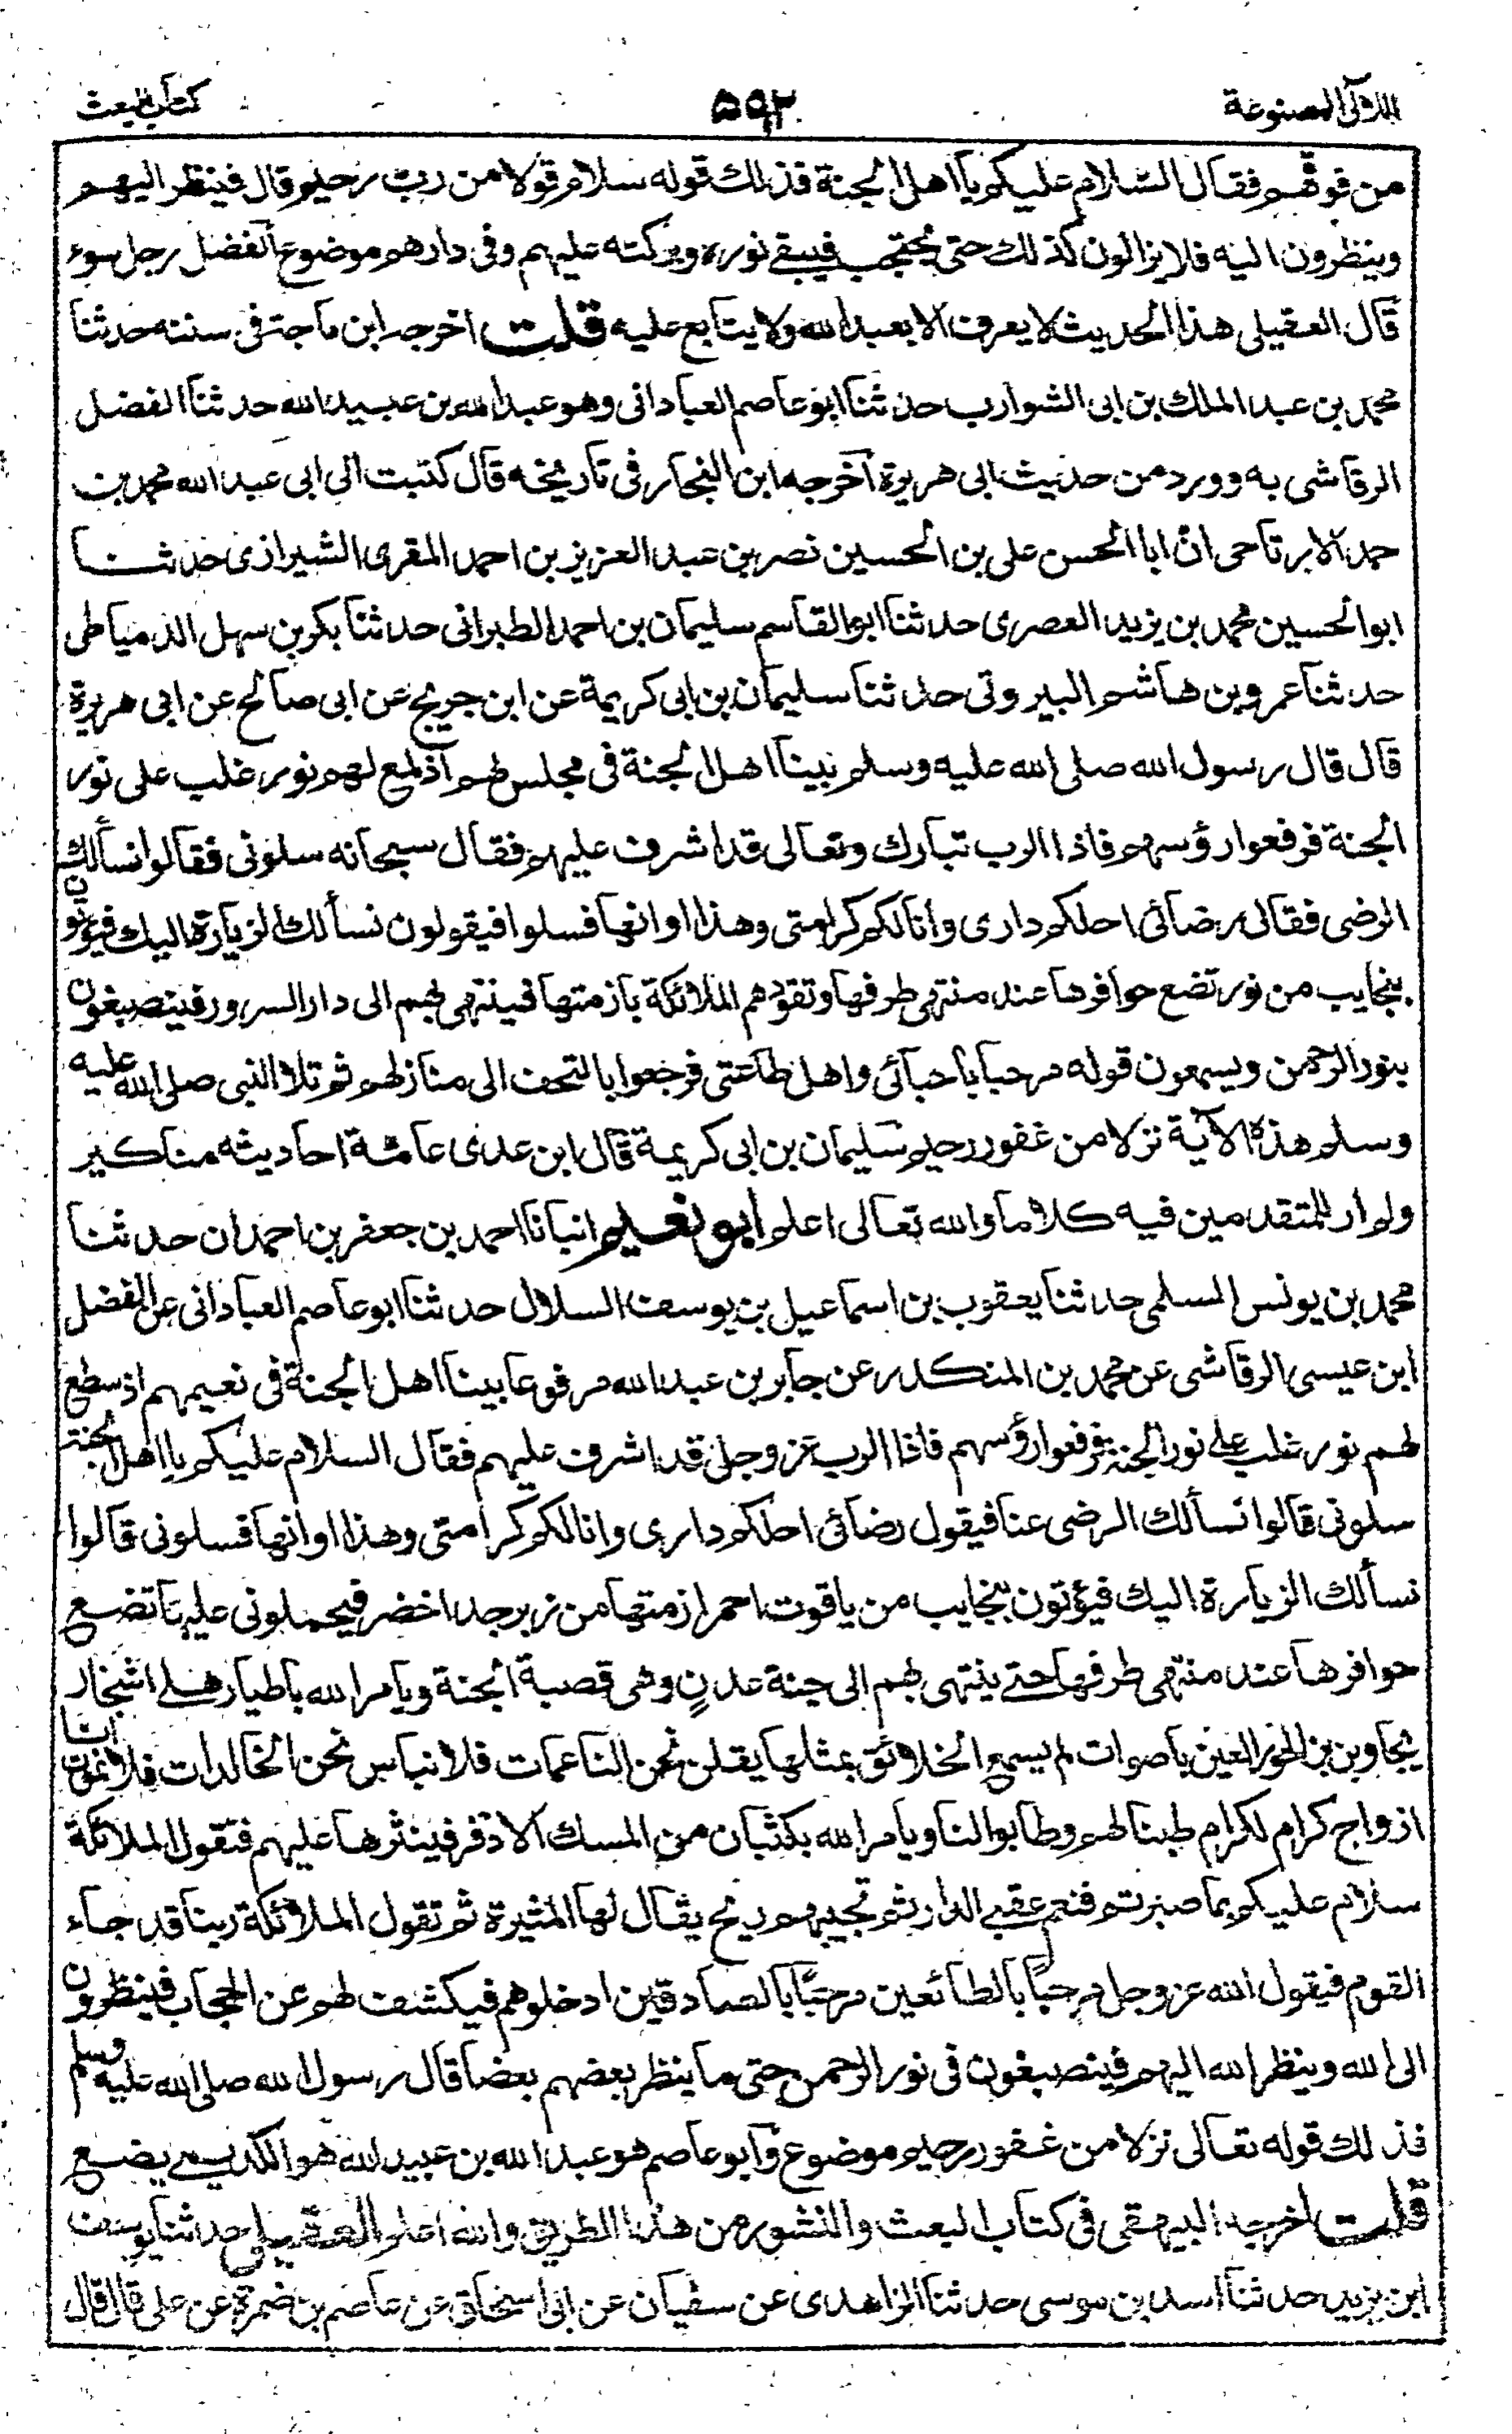 اللآلی المصنوعة ۵۹۲ کتاب البعث
من فوقهم فقال السلام علیکم یا اهل الجنة فذلك قوله سلام قولا من رب رحیم قال فینظر الیهم
وینظرون الیه فلا یزالون کذلك حتی یحتجب فیبقی نوره وبرکته علیهم وفی دارهم موضوع الفضل رجل سوء
قال العقیلی هذا الحدیث لا یعرف الا بعبد الله ولا یتابع علیه قلت اخرجه ابن ماجة فی سننه حدثنا
محمد بن عبد الملك بن ابی الشوارب حدثنا ابو عاصم العبادانی وهو عبد الله بن عبید الله حدثنا الفضل
الرقاشی به وورد من حدیث ابی هریرة اخرجه ابن النجار فی تاریخه قال کتبت الی ابی عبد الله محمد بن
حمد الابرتاحی ان ابا الحسن علی بن الحسین نصر بن عبد العزیز بن احمد المقری الشیرازی حدثنا
ابو الحسین محمد بن یزید العصری حدثنا ابو القاسم سلیمان بن احمد الطبرانی حدثنا بکر بن سهل الدمیاطی
حدثنا عمرو بن هاشم البیروتی حدثنا سلیمان بن ابی کریمة عن ابن جریج عن ابی صالح عن ابی هریرة
قال قال رسول الله صلی الله علیه وسلم بینا اهل الجنة فی مجلس لهم اذ لمع لهم نور غلب علی نور
الجنة فرفعوا رؤسهم فاذا الرب تبارك وتعالی قد اشرف علیهم فقال سبحانه سلونی فقالوا نسألك
الرضی فقال رضائی احلکم داری وانالکم کرامتی وهذا اوانها فسلوا فیقولون نسألك الزیارة الیك فیؤتون
بنجایب من نور تضع حوافرها عند منتهی طرفها وتقودهم الملائکة بازمتها فینتهی بهم الی دار السرور فینصبغون
بنور الرحمن ویسمعون قوله مرحبا باحبائی واهل طاعتی فرجعوا بالتحف الی منازلهم ثم تلا النبی صلی الله علیه
وسلم هذه الآیة نزلا من غفور رحیم سلیمان بن ابی کریمة قال ابن عدی عامة احادیثه مناکیر
ولم ار للمتقدمین فیه کلاما والله تعالی اعلم ابو نعیم انبانا احمد بن جعفر بن احمدان حدثنا
محمد بن یونس المسلمی حدثنا یعقوب بن اسماعیل بن یوسف السلال حدثنا ابو عاصم العبادانی عن الفضل
ابن عیسی الرقاشی عن محمد بن المنکدر عن جابر بن عبد الله مرفوعا بینا اهل الجنة فی نعیمهم اذ سطع
لهم نور غلب علی نور الجنة فرفعوا رؤسهم فاذا الرب عز وجل قد اشرف علیهم فقال السلام علیکم یا اهل الجنة
سلونی قالوا نسألك الرضی عنا فیقول رضائی احلکم داری وانالکم کرامتی وهذا اوانها فسلونی قالوا
نسألك الزیارة الیك فیؤتون بنجایب من یاقوت احمر ازمتها من زبرجد اخضر فیحملونی علیها تضع
حوافرها عند منتهی طرفها حتے ینتهی بهم الی جنة عدنٍ وهی قصبة الجنة ویامر الله باطیار هلے اشجار
یجاوبن بن الحور العین باصوات لم یسمع الخلائق بمثلها یقلن نحن الناعمات فلا نباس نحن الخالدات فلا نموت انا
ازواج کرام لکرام طبنا لهم وطابوا لنا ویامر الله بکثبان من المسك الاذفر فینثرها علیهم فتقول الملائکة
سلام علیکم بما صبرتم فنعم عقبے الدار ثم تجیبهم ریح یقال لها المثیرة ثم تقول الملائکة ربنا قد جاء
القوم فیقول الله عز وجل مرحبًا بالطائعین مرحبًا بالصادقین ادخلوهم فیکشف لهم عن الحجاب فینظرون
الی الله وینظر الله الیهم فینصبغون فی نور الرحمن حتی ما ینظر بعضهم بعضا قال رسول الله صلی الله علیه وسلم
فذلك قوله تعالی نزلا من غفور رحیم موضوع وابو عاصم هو عبد الله بن عبید الله هو الکدیمے یضع
قلت اخرجه البیهقی فی کتاب البعث والنشور من هذا الطریق والله اعلم العقیلی حدثنا یوسف
ابن یزید حدثنا اسد بن موسی حدثنا الزاهدی عن سفیان عن ابی اسحاق عن عاصم بن ضمرة عن علی قال قال